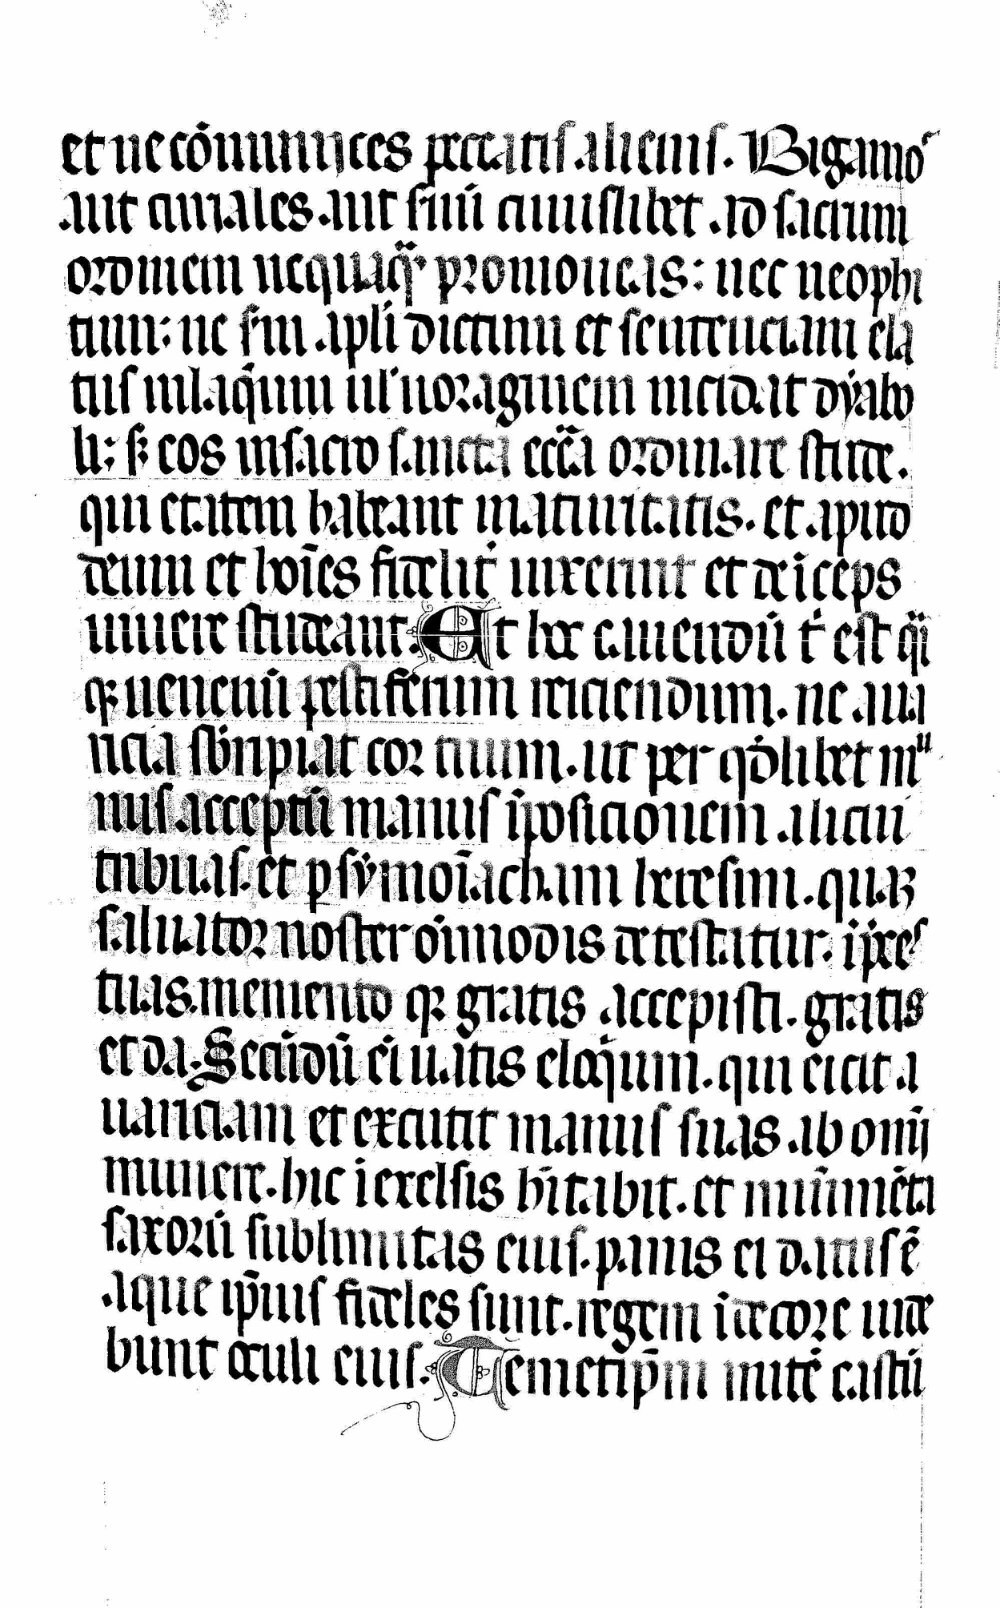 et ne cōmunices peccatis alienis. Bigamos
aut curiales aut ſuū cuiuſlibet ad ſacrum
ordinem nequaq̄ꝫ promoueas: nec neophi
tum: ne ẜm apl̄i dictum et ſentenciam ela
tus in laq̄um ul' uoraginem incidat dyabo
li: ſꝫ eos in ſacro ſancta ecc̄a ordinare ſtude.
qui etatem habeant maturitatis. et apud
deum et hoīes fidelit̄ uixerint et deīceps
uiuere ſtudeant. At hec cauendū t' eſt q̄ſi
qꝫ uenenū peſtiferum reiciendum. ne aua
ricia ſb̄ripiat cor tuum. ut per q̄dlibet mu
nus acceptū manus īpoſicionem alicui
tribuas. et ꝑ ſymoīacham hereſim. quaꝫ
ſaluator noſter oīmodis deteſtatur. īp̄res
tuas. memento qꝫ gratis accepiſti. gratis
et da. Secūdū eī uatis eloq̄ium. qui eicit a
uariciam et excutit manus ſuas ab omī
munere. hic ī excelſis h̄itabit. et munīmēta
ſaxorū ſublimitas eius. panis ei datuſ ē
aque ip̄ius fideles ſunt. regem ī decore uide
bunt oculi eius. Temetip̄m mitē caſtū